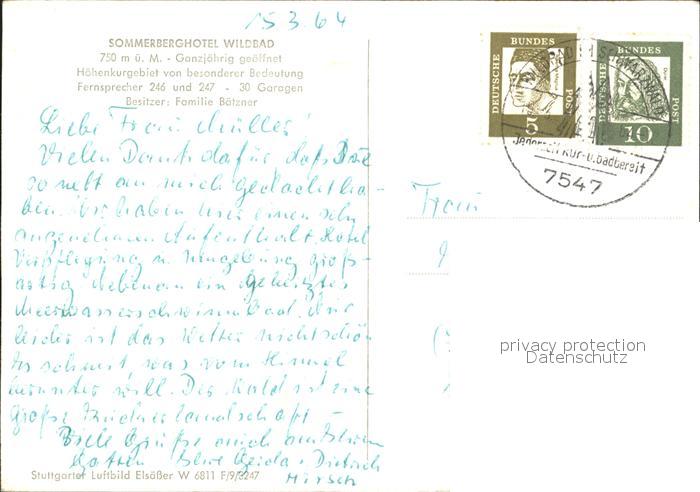 15.3.64
SOMMERBERGHOTEL WILDBAD
750 m ü. M. - Ganzjährig geöffnet
Höhenkurgebiet von besonderer Bedeutung
Fernsprecher 246 und 247 - 30 Garagen
Besitzer: Familie Bätzner
Liebe Frau Müller!
Vielen Dank dafür, daß Sie
so nett an mich gedacht ha-
ben. Wir haben hier einen sehr
angenehmen Aufenthalt. Hotel
Verpflegung u. Umgebung groß-
artig. Nebenan ein geheiztes
Meerwasserschwimmbad. Nur
leider ist das Wetter nicht schön
Es schneit, was vom Himmel
herunter will. Der Wald ist eine
große Zuckerlandschaft -
Viele Grüße auch an Ihren
Gatten Ihre Gerda + Dietrich
Hirsch
Stuttgarter Luftbild Elsäßer W 6811 F/9/3247
DEUTSCHE BUNDES POST
5
DEUTSCHE BUNDES POST
10
Jederzeit kur-u.badbereit
7547
Frau
privacy protection
Datenschutz